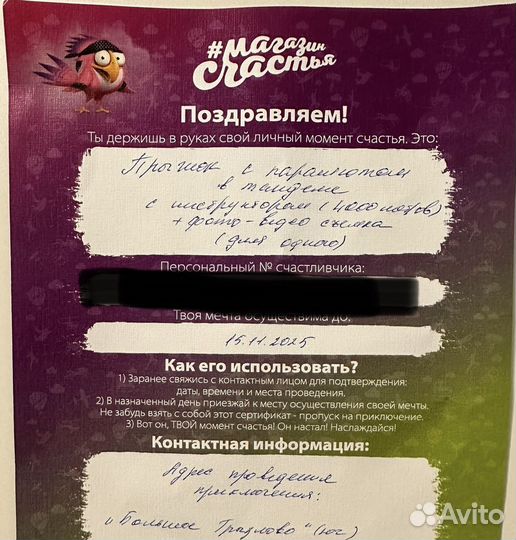 #магазин
счастья
Поздравляем!
Ты держишь в руках свой личный момент счастья. Это:
Прыжок с парашютом
в тандеме
с инструктором (4000 метров)
+ фото-видео съемка
(для одного)
Персональный № счастливчика:
Твоя мечта осуществима до:
15.11.2025
Как его использовать?
1) Заранее свяжись с контактным лицом для подтверждения:
даты, времени и места проведения.
2) В назначенный день приезжай к месту осуществления своей мечты.
Не забудь взять с собой этот сертификат - пропуск на приключение.
3) Вот он, ТВОЙ момент счастья! Он настал! Наслаждайся!
Контактная информация:
Адрес проведения
приключения:
"Большое Грызлово" (юг)
Avito